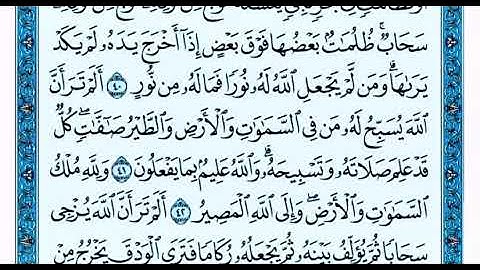 سَحَابٌۚ ظُلُمَٰتُۢ بَعۡضُهَا فَوۡقَ بَعۡضٍ إِذَآ أَخۡرَجَ يَدَهُۥ لَمۡ يَكَدۡ
يَرَىٰهَاۗ وَمَن لَّمۡ يَجۡعَلِ ٱللَّهُ لَهُۥ نُورٗا فَمَا لَهُۥ مِن نُّورٍ ٤٠ أَلَمۡ تَرَ أَنَّ
ٱللَّهَ يُسَبِّحُ لَهُۥ مَن فِي ٱلسَّمَٰوَٰتِ وَٱلۡأَرۡضِ وَٱلطَّيۡرُ صَٰٓفَّٰتٖۖ كُلّٞ
قَدۡ عَلِمَ صَلَاتَهُۥ وَتَسۡبِيحَهُۥۗ وَٱللَّهُ عَلِيمُۢ بِمَا يَفۡعَلُونَ ٤١ وَلِلَّهِ مُلۡكُ
ٱلسَّمَٰوَٰتِ وَٱلۡأَرۡضِۖ وَإِلَى ٱللَّهِ ٱلۡمَصِيرُ ٤٢ أَلَمۡ تَرَ أَنَّ ٱللَّهَ يُزۡجِي
سَحَابٗا ثُمَّ يُؤَلِّفُ بَيۡنَهُۥ ثُمَّ يَجۡعَلُهُۥ رُكَامٗا فَتَرَى ٱلۡوَدۡقَ يَخۡرُجُ مِنۡ